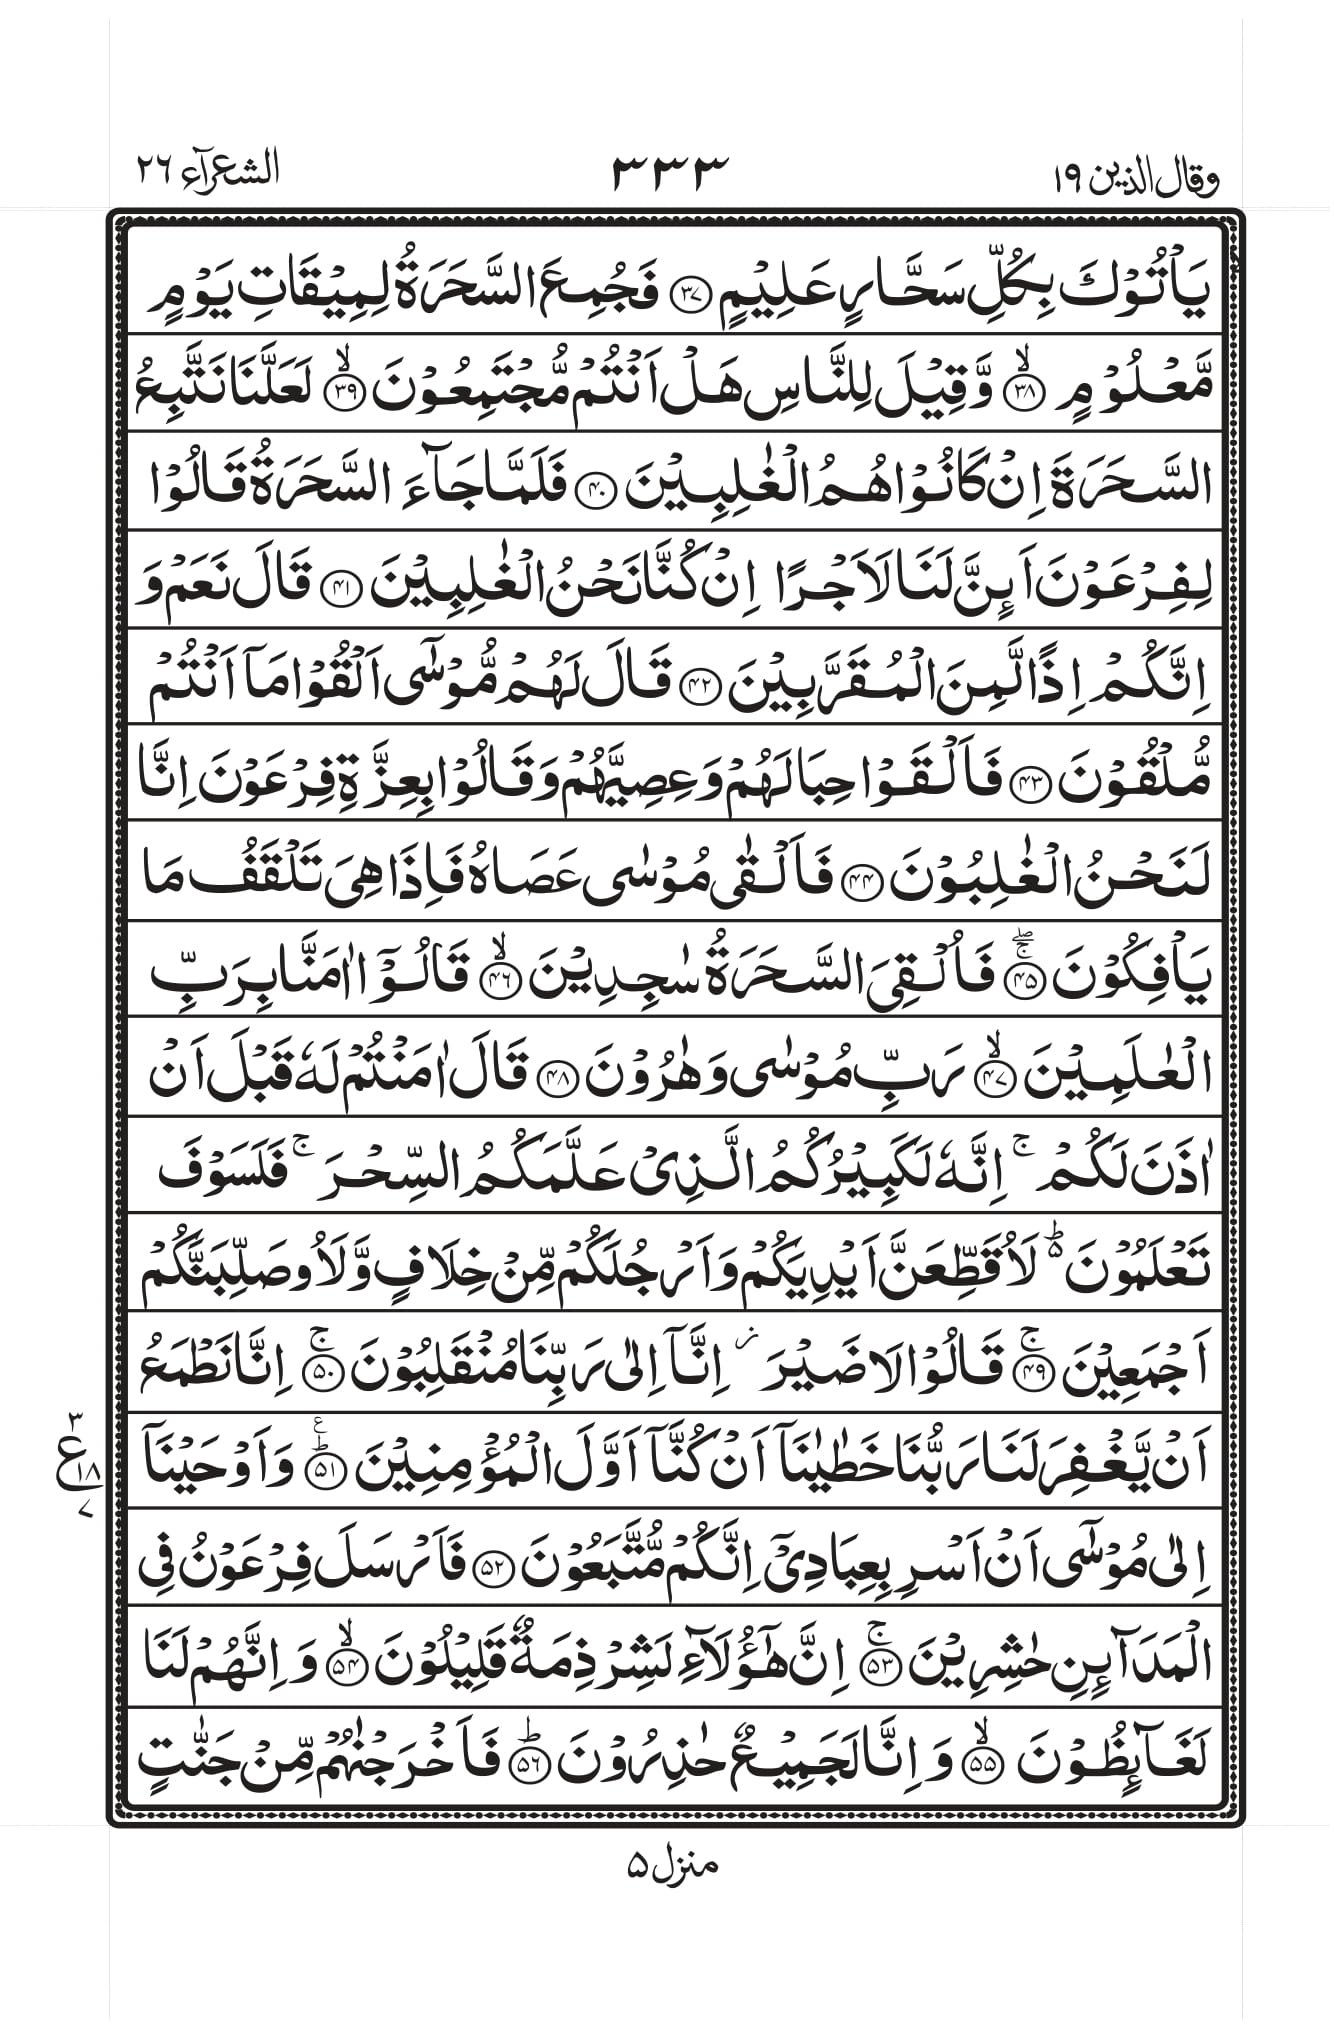 وقال الذین ١٩
٣٣٣
الشعرآء ٢٦
یَاۡتُوۡكَ بِكُلِّ سَحَّارٍ عَلِیۡمٍ ﴿۳۷﴾ فَجُمِعَ السَّحَرَةُ لِمِیۡقَاتِ یَوۡمٍ
مَّعۡلُوۡمٍ ﴿ۙ۳۸﴾ وَّقِیۡلَ لِلنَّاسِ هَلۡ اَنۡتُمۡ مُّجۡتَمِعُوۡنَ ﴿ۙ۳۹﴾ لَعَلَّنَا نَتَّبِعُ
السَّحَرَةَ اِنۡ كَانُوۡا هُمُ الۡغٰلِبِیۡنَ ﴿۴۰﴾ فَلَمَّا جَآءَ السَّحَرَةُ قَالُوۡا
لِفِرۡعَوۡنَ اَئِنَّ لَنَا لَاَجۡرًا اِنۡ كُنَّا نَحۡنُ الۡغٰلِبِیۡنَ ﴿۴۱﴾ قَالَ نَعَمۡ وَ
اِنَّكُمۡ اِذًا لَّمِنَ الۡمُقَرَّبِیۡنَ ﴿۴۲﴾ قَالَ لَهُمۡ مُّوۡسٰۤی اَلۡقُوۡا مَاۤ اَنۡتُمۡ
مُّلۡقُوۡنَ ﴿۴۳﴾ فَاَلۡقَوۡا حِبَالَهُمۡ وَعِصِیَّهُمۡ وَقَالُوۡا بِعِزَّةِ فِرۡعَوۡنَ اِنَّا
لَنَحۡنُ الۡغٰلِبُوۡنَ ﴿۴۴﴾ فَاَلۡقٰی مُوۡسٰی عَصَاهُ فَاِذَا هِیَ تَلۡقَفُ مَا
یَاۡفِكُوۡنَ ﴿ۚۖ۴۵﴾ فَاُلۡقِیَ السَّحَرَةُ سٰجِدِیۡنَ ﴿ۙ۴۶﴾ قَالُوۡۤا اٰمَنَّا بِرَبِّ
الۡعٰلَمِیۡنَ ﴿ۙ۴۷﴾ رَبِّ مُوۡسٰی وَهٰرُوۡنَ ﴿۴۸﴾ قَالَ اٰمَنۡتُمۡ لَهٗ قَبۡلَ اَنۡ
اٰذَنَ لَكُمۡ ۚ اِنَّهٗ لَكَبِیۡرُكُمُ الَّذِیۡ عَلَّمَكُمُ السِّحۡرَ ۚ فَلَسَوۡفَ
تَعۡلَمُوۡنَ ۬ؕ لَاُقَطِّعَنَّ اَیۡدِیَكُمۡ وَاَرۡجُلَكُمۡ مِّنۡ خِلَافٍ وَّلَاُوصَلِّبَنَّكُمۡ
اَجۡمَعِیۡنَ ﴿ۚ۴۹﴾ قَالُوۡا لَا ضَیۡرَ ۫ اِنَّاۤ اِلٰی رَبِّنَا مُنۡقَلِبُوۡنَ ﴿ۚ۵۰﴾ اِنَّا نَطۡمَعُ
اَنۡ یَّغۡفِرَ لَنَا رَبُّنَا خَطٰیٰنَاۤ اَنۡ كُنَّاۤ اَوَّلَ الۡمُؤۡمِنِیۡنَ ﴿ؕ۵۱﴾ وَاَوۡحَیۡنَاۤ
٣ ع ١٨ ٧
اِلٰی مُوۡسٰۤی اَنۡ اَسۡرِ بِعِبَادِیۡۤ اِنَّكُمۡ مُّتَّبَعُوۡنَ ﴿۵۲﴾ فَاَرۡسَلَ فِرۡعَوۡنُ فِی
الۡمَدَآئِنِ حٰشِرِیۡنَ ﴿ۚ۵۳﴾ اِنَّ هٰۤؤُلَآءِ لَشِرۡذِمَةٌ قَلِیۡلُوۡنَ ﴿ۙ۵۴﴾ وَاِنَّهُمۡ لَنَا
لَغَآئِظُوۡنَ ﴿ۙ۵۵﴾ وَاِنَّا لَجَمِیۡعٌ حٰذِرُوۡنَ ﴿ؕ۵۶﴾ فَاَخۡرَجۡنٰهُمۡ مِّنۡ جَنّٰتٍ
منزل ۵